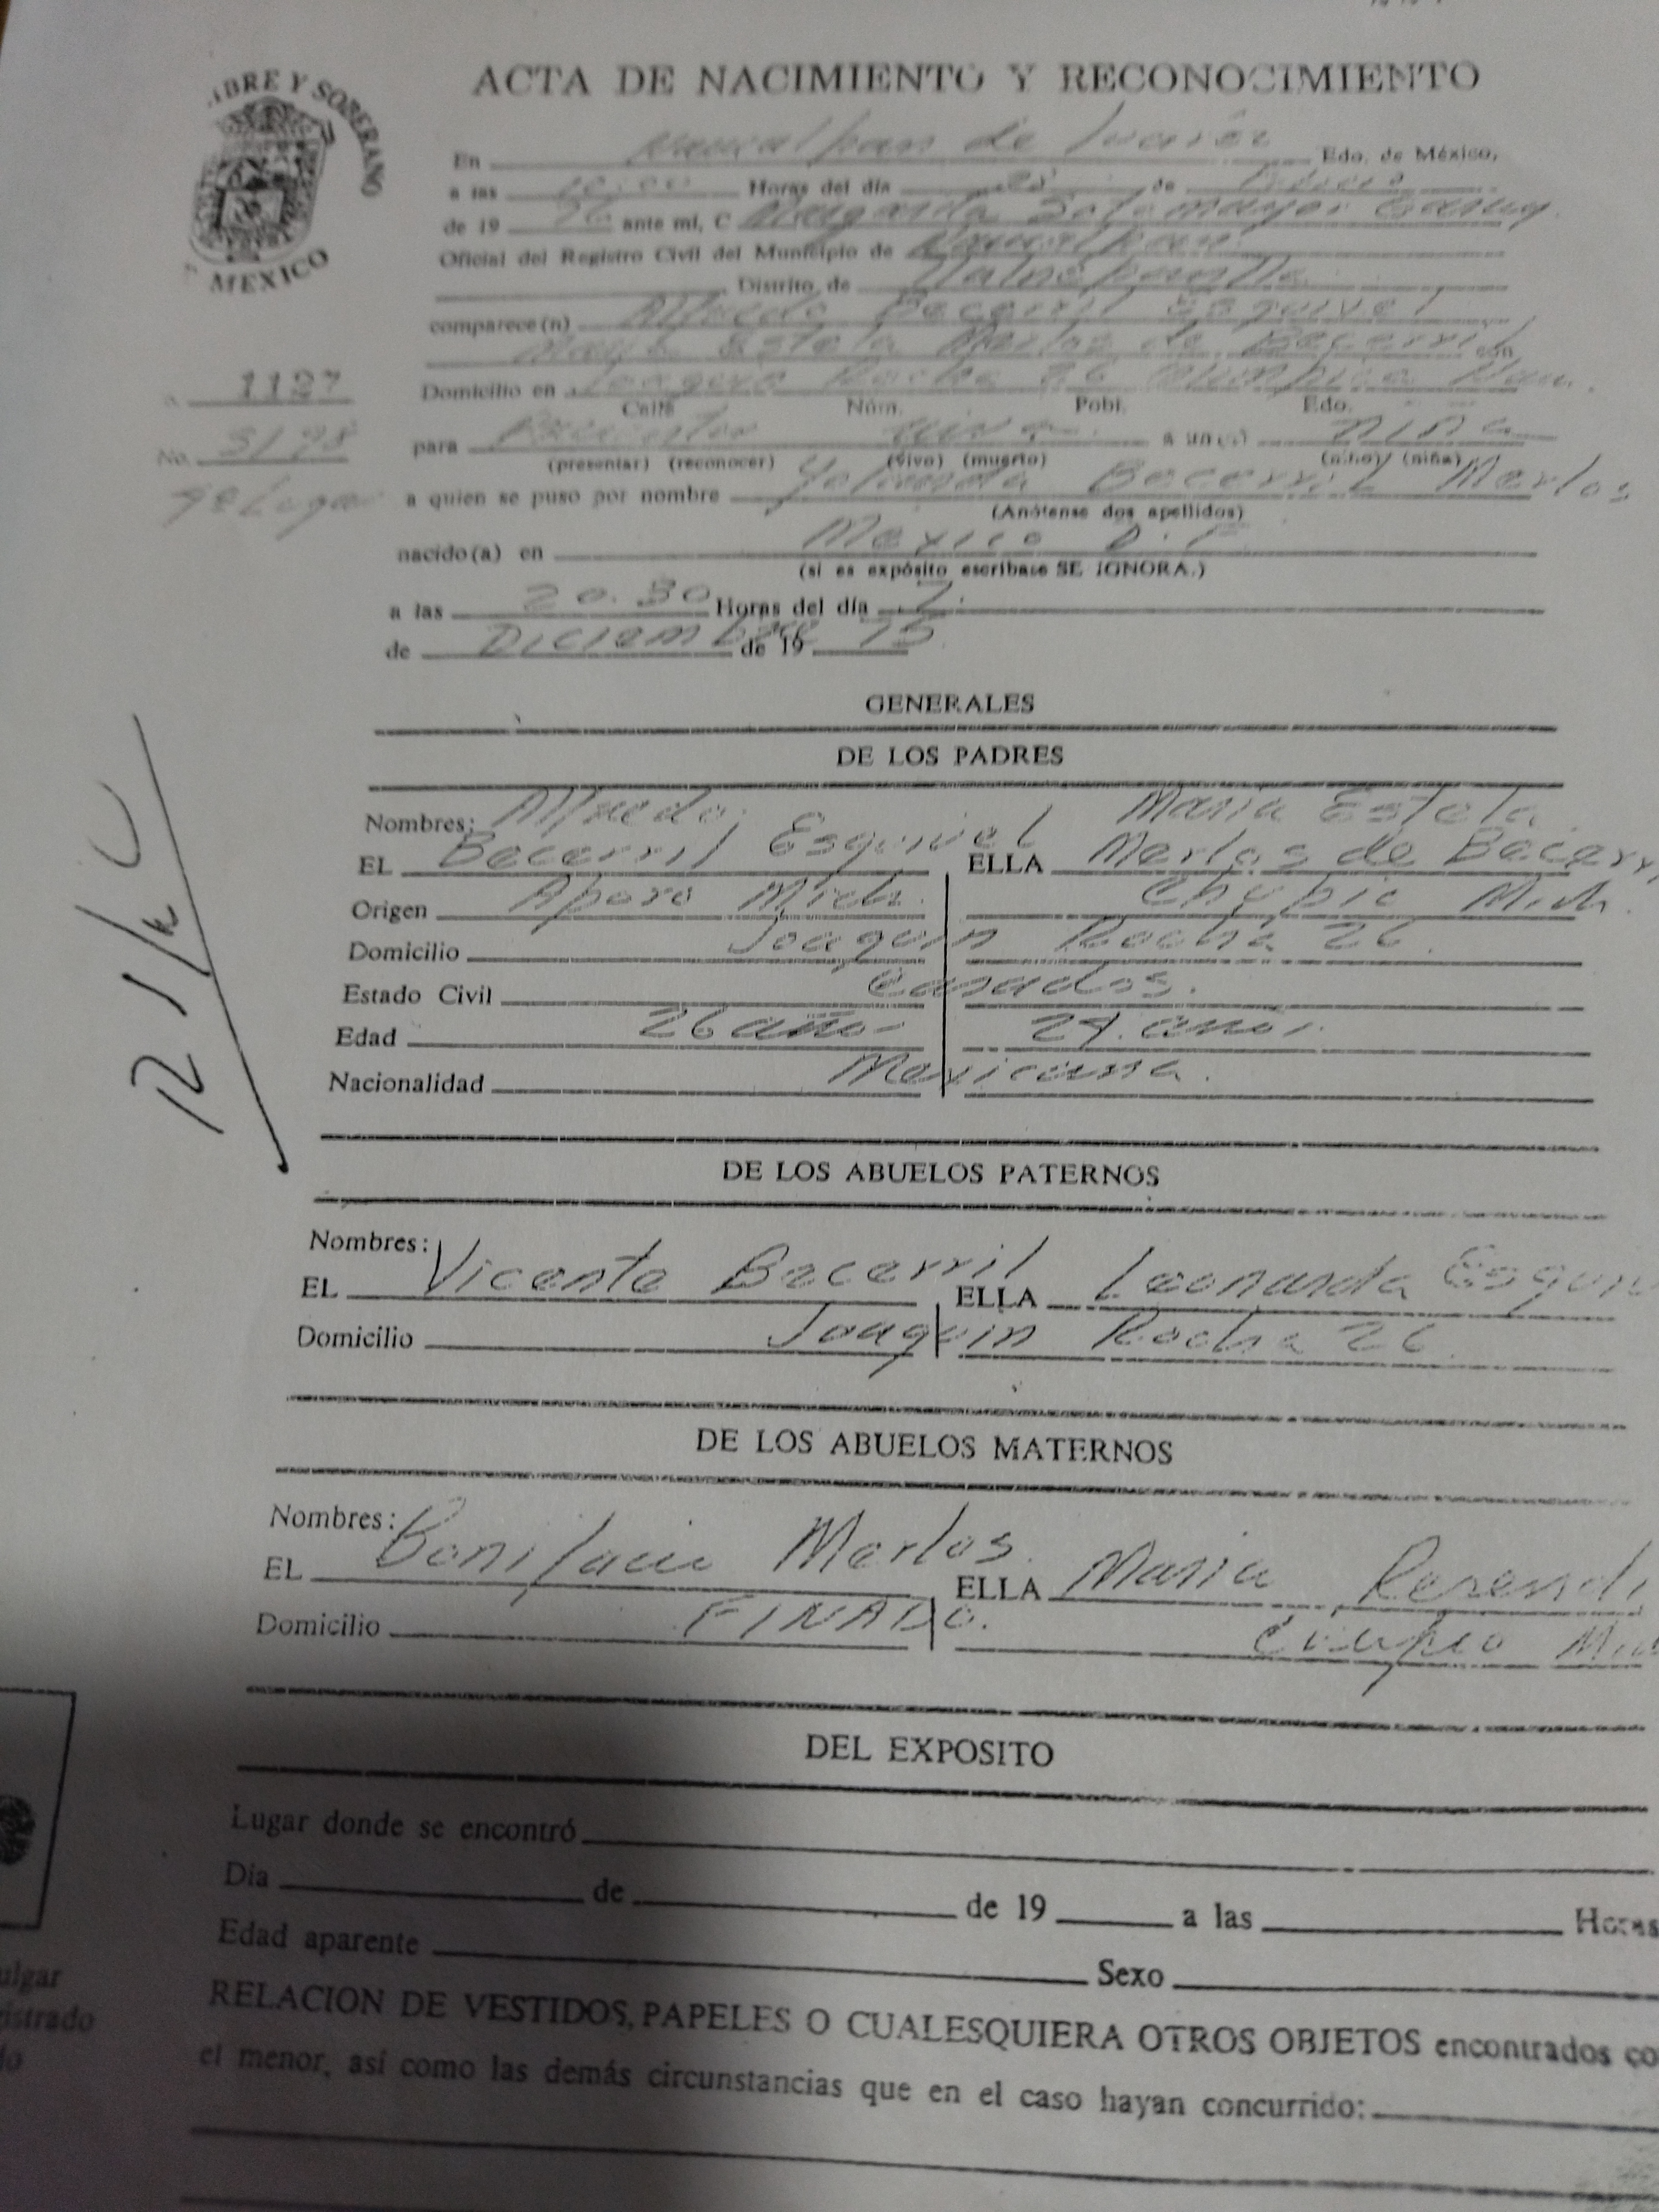 ACTA DE NACIMIENTO Y RECONOCIMIENTO
LIBRE Y SOBERANO
MEXICO
En Naucalpan de Juarez Edo. de México,
a las 10:00 Horas del día de
de 19 76 ante mi, C Margarita Sotomayor
Oficial del Registro Civil del Municipio de Naucalpan
Distrito de Tlalnepantla
comparece(n) Alfredo Becerril Esquivel
Maria Estela Merlos de Becerril con
1127
Domicilio en Joaquin Rocha 26 Olimpica Nau.
Calle Núm. Pobl. Edo.
No. 51/98
para Presentar viva a un(a) niña
(presentar) (reconocer) (vivo) (muerto) (niño) (niña)
a quien se puso por nombre Yolanda Becerril Merlos
(Anótense dos apellidos)
nacido(a) en Mexico D.F
(si es expósito escríbase SE IGNORA.)
a las 20.30 Horas del día 7.
de Diciembre de 19 75
GENERALES
DE LOS PADRES
Nombres: Alfredo Maria Estela
EL Becerril Esquivel ELLA Merlos de Becerr
Origen Aporo Mich. Mich.
Domicilio Joaquin Rocha 26.
Estado Civil Casados.
Edad 26 años 24 años
Nacionalidad Mexicana.
DE LOS ABUELOS PATERNOS
Nombres:
EL Vicente Becerril ELLA Leonarda Esquiv
Domicilio Joaquin Rocha 26
DE LOS ABUELOS MATERNOS
Nombres:
EL Bonifacio Merlos. ELLA Maria Resendi
Domicilio FINADO.
DEL EXPOSITO
Lugar donde se encontró
Dia de de 19 a las Horas
Edad aparente Sexo
ulgar
gistrado
RELACION DE VESTIDOS, PAPELES O CUALESQUIERA OTROS OBJETOS encontrados co
el menor, así como las demás circunstancias que en el caso hayan concurrido: